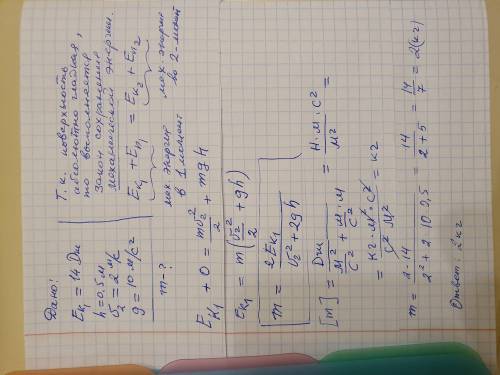 Дано:
Eк₁ = 14 Дж
h = 0,5 м
υ₂ = 2 м/с
g = 10 м/с²
m - ?
Т.к. поверхность
абсолютно гладкая,
то выполняется
Закон сохранения
механической энергии.
Eк₁ + Eп₁ = Eк₂ + Eп₂
мех энергия в 1 момент
мех энергия во 2-момент
Eк₁ + 0 = mυ₂²/2 + mgh
Eк₁ = m(υ₂²/2 + gh)
m = 2Eк₁/(υ₂² + 2gh)
[m] = Дж/(м²/с² + м·м/с²) = Н·м·с²/м² =
= кг·м²·с²/(с²·м²) = кг
m = 2·14/(2² + 2·10·0,5) = 14/(2+5) = 14/7 = 2(кг)
Ответ: 2 кг